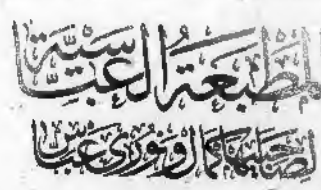 المَطْبَعَةُ العَبَّاسِيَّةُ
لصَاحِبَيهَا كمَال ونُورى عَبَّاس